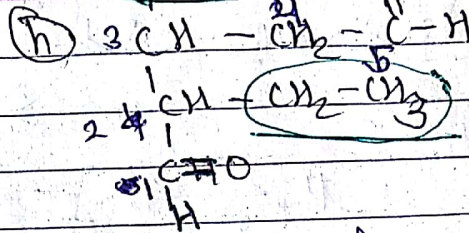 (h) 3 CH - CH2 - C - H
2 4 CH - CH2 - CH3
1 C=O
H